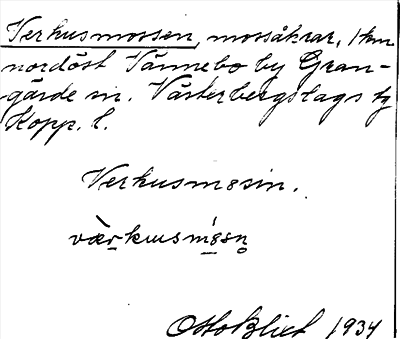 Verkusmossen, mossåkrar, 1 km
nordöst Vännebo by Gran-
gärde sn. Västerbergslags tg
Kopp. l.
Verkusmosin.
Otto Blixt 1934